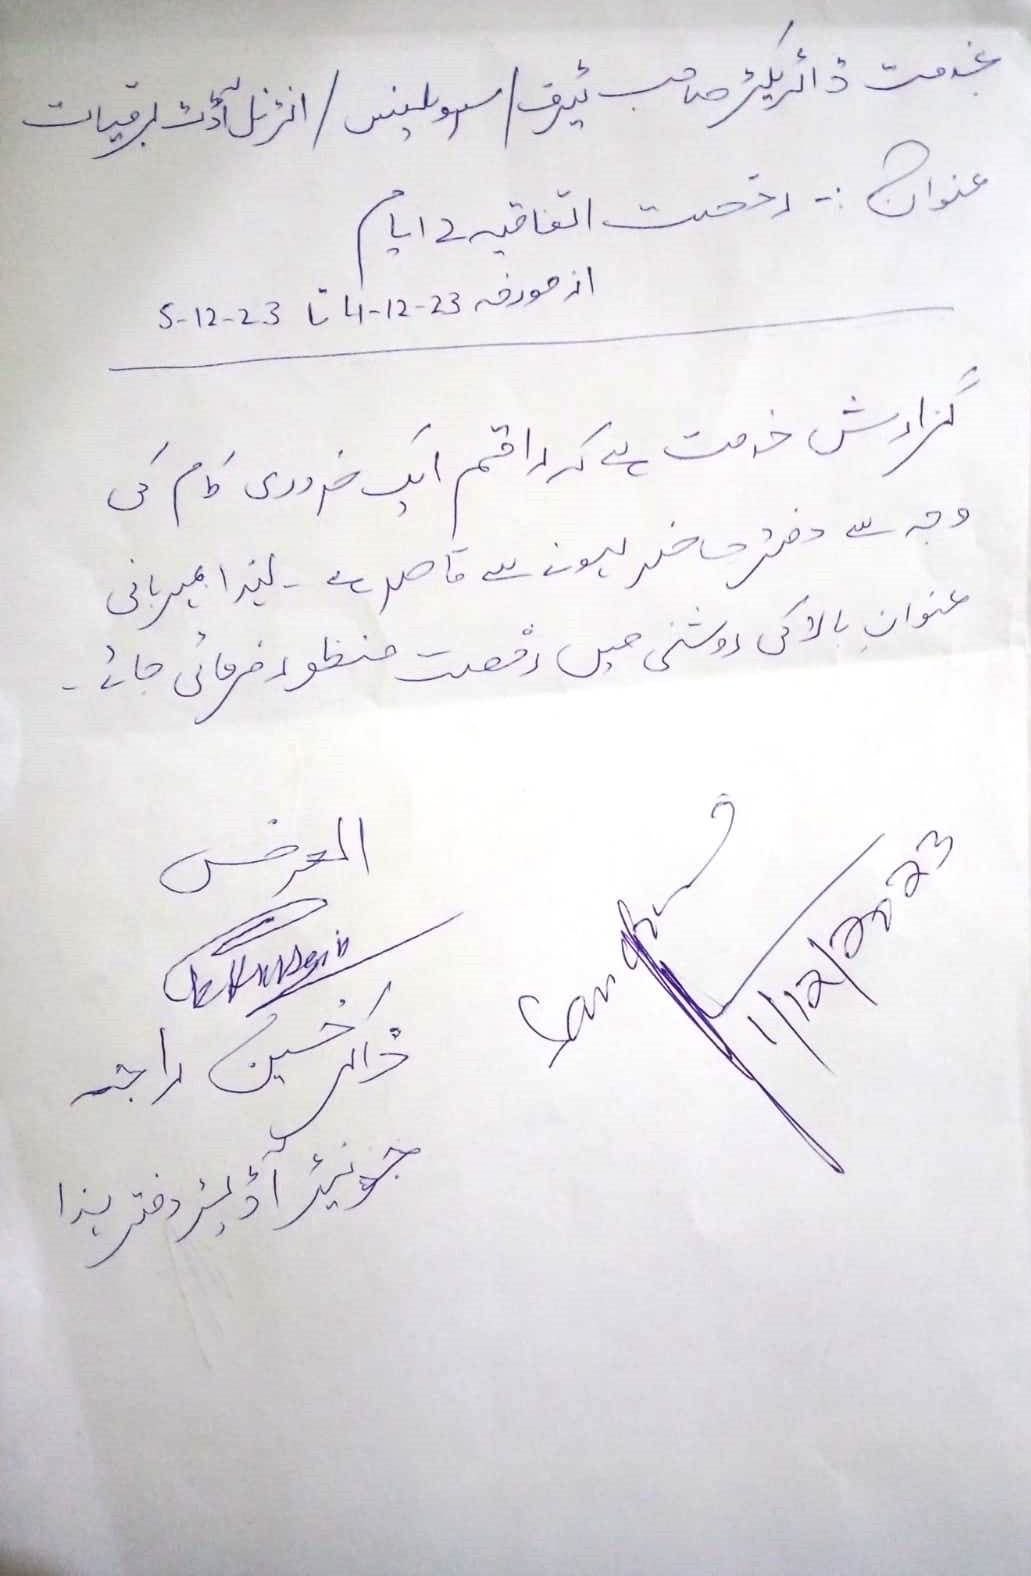 بخدمت ڈائریکٹر صاحب ٹیرف / سرویلینس / انٹرنل آڈٹ برقیات
عنوان :- رخصت اتفاقیہ 2 ایام
از مورخہ 4-12-23 تا 5-12-23
گزارش خدمت ہے کہ راقم ایک ضروری کام کی
وجہ سے دفتر حاضر ہونے سے قاصر ہے ۔ لہذا بمہربانی
عنوان بالا کی روشنی میں رخصت منظور فرمائی جائے ۔
العرض
Hussain
ذاکر حسین راجہ
جونیئر آڈیٹر دفتر ہذا
1/12/2023